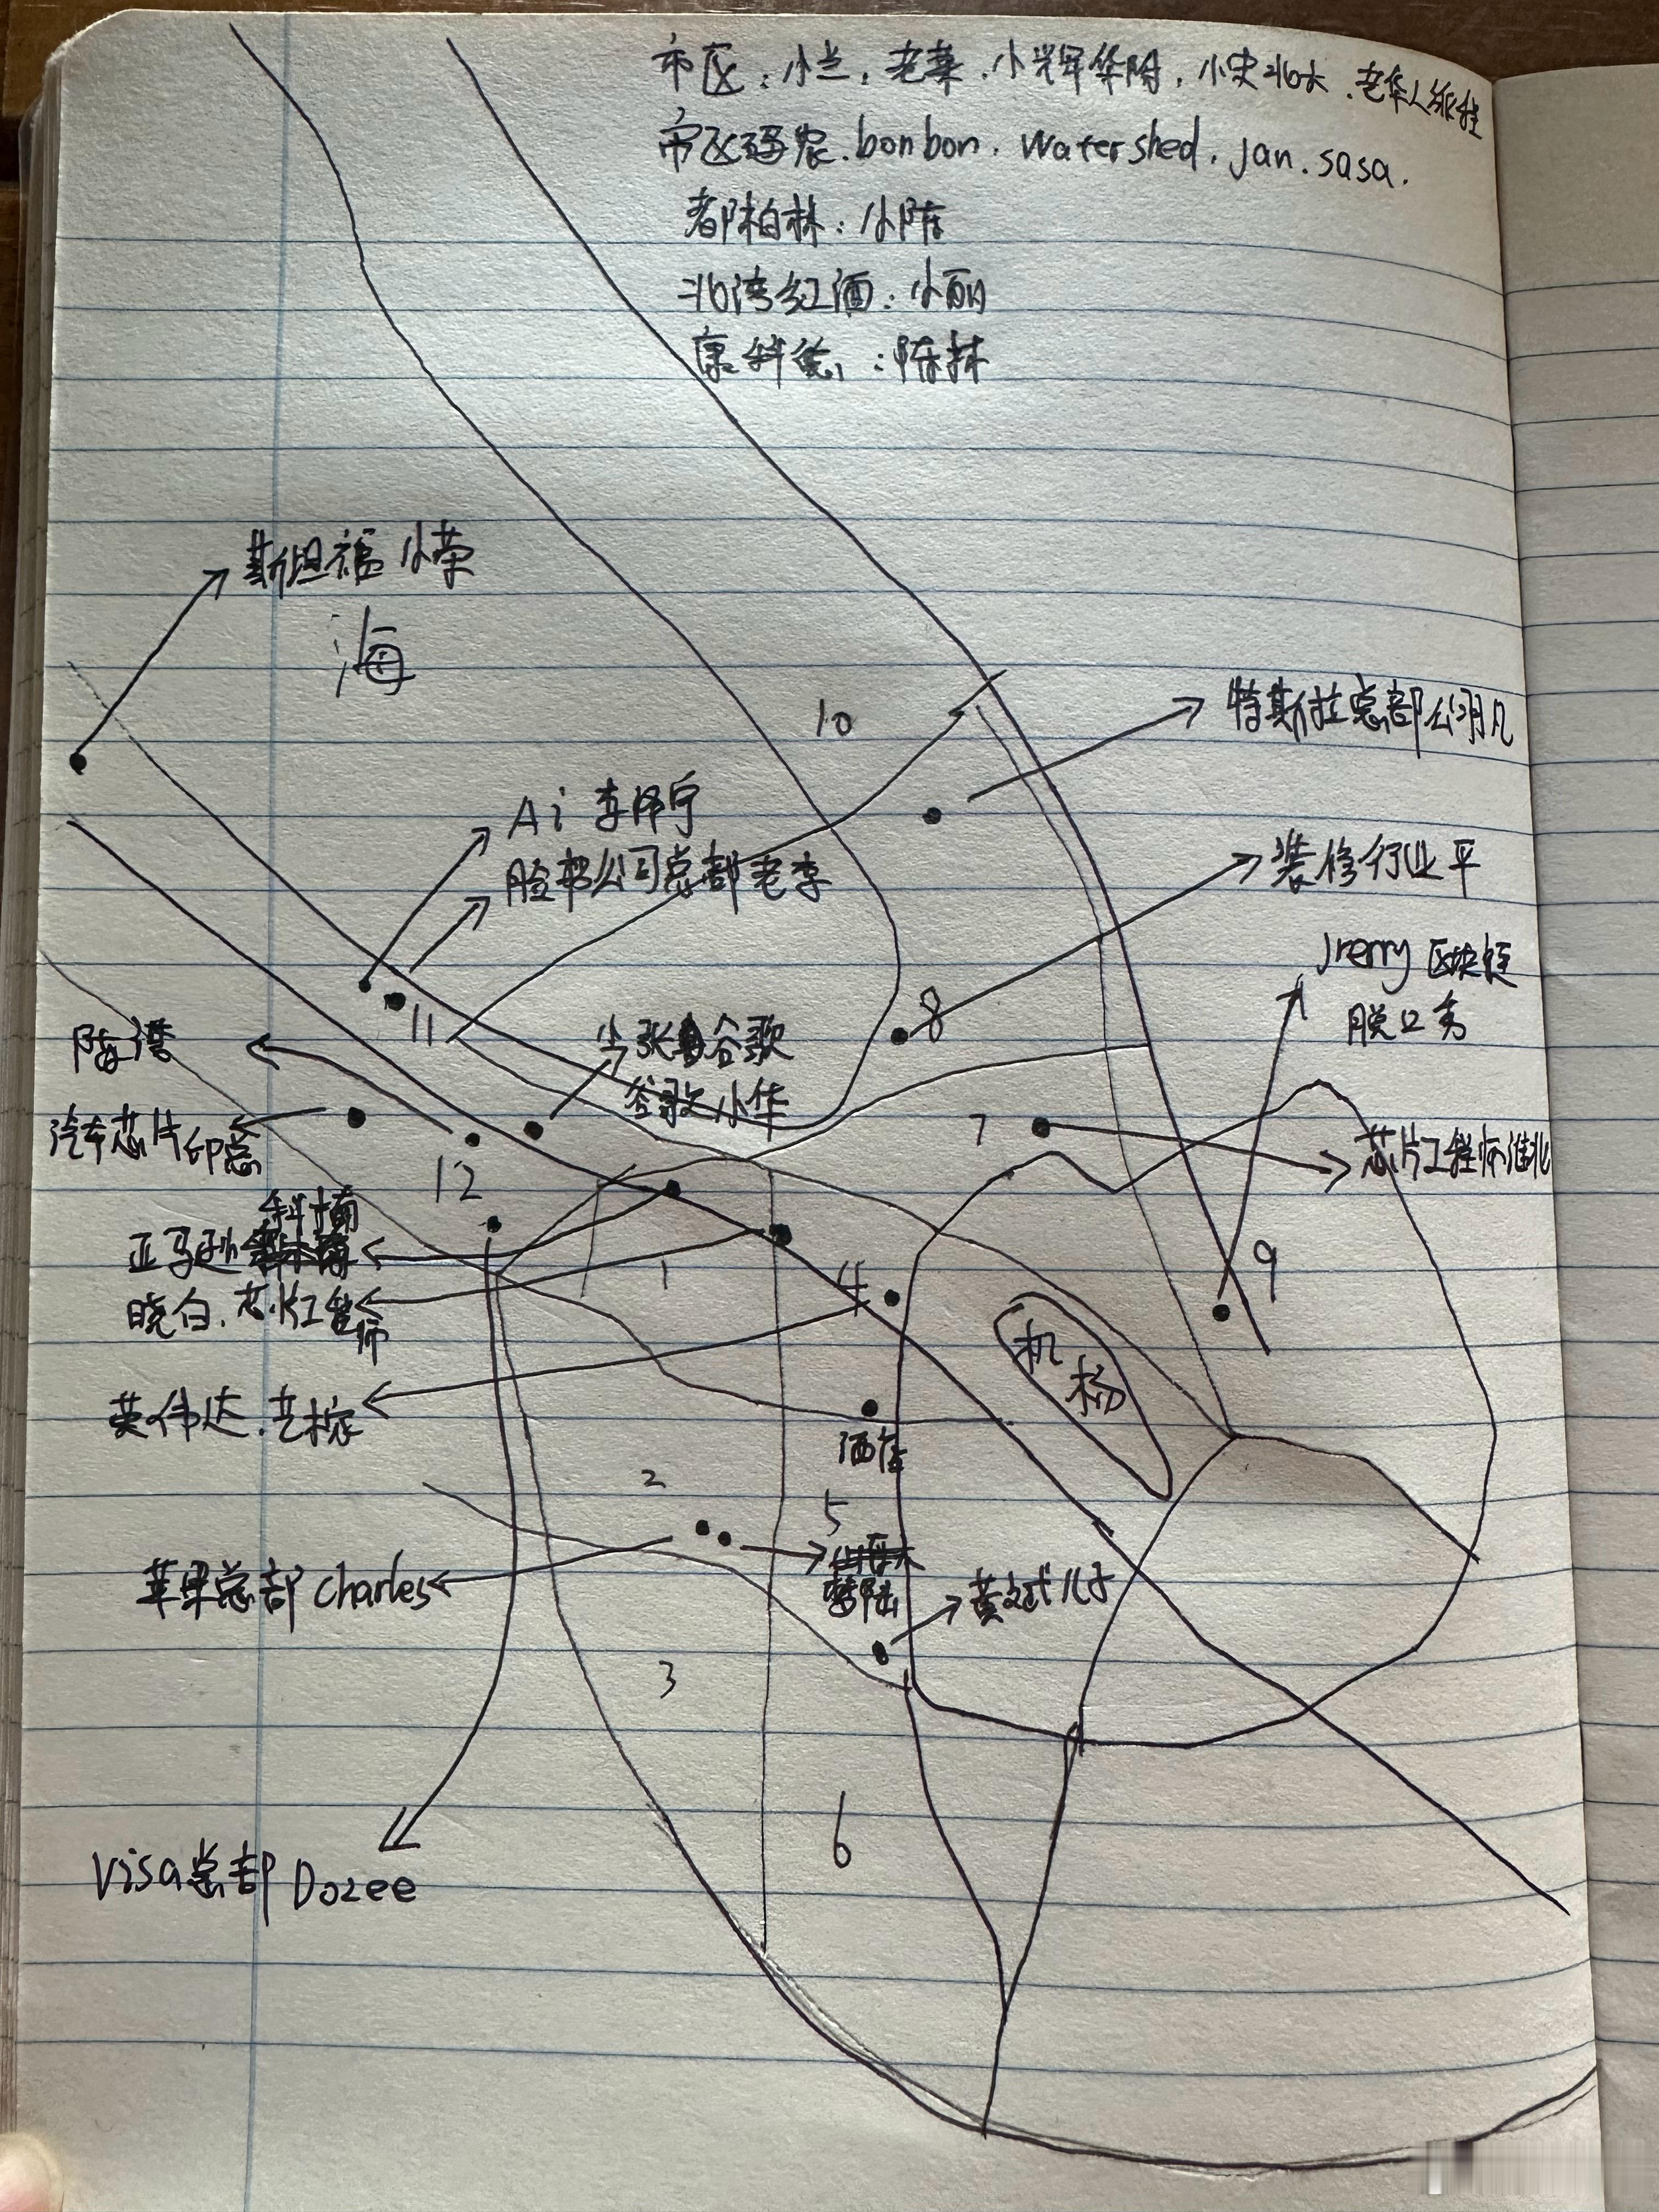 市区：小兰，老莱，小辉华阳，小宋北大，老华人
市区 bonbon. Watershed. Jan. sasa.
都柏林：小陈
北湾红酒：小丽
康科德：陈林
斯坦福 小荣
海
10
特斯拉总部
Ai 李泽宁
脸书公司总部老李
装修行业平
Jrerry 区块链
脱口秀
8
11
张 谷歌
谷歌小华
陆湾
汽车芯片印总
7
芯片工程师淮北
12
科楠
亚马逊
晓白.芯片工程师
1
4
9
机场
英伟达.艺棕
酒店
2
5
苹果总部 Charles
黄 儿子
3
6
Visa总部 Dozee